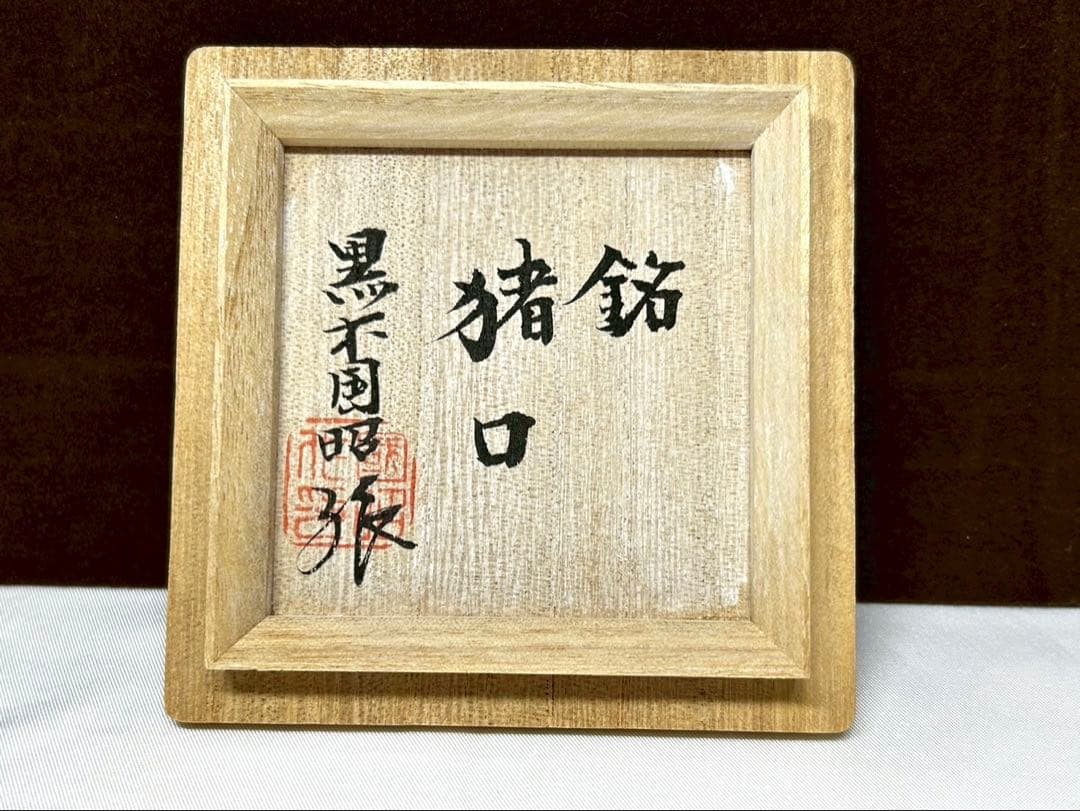 銘
猪口
黒木国昭